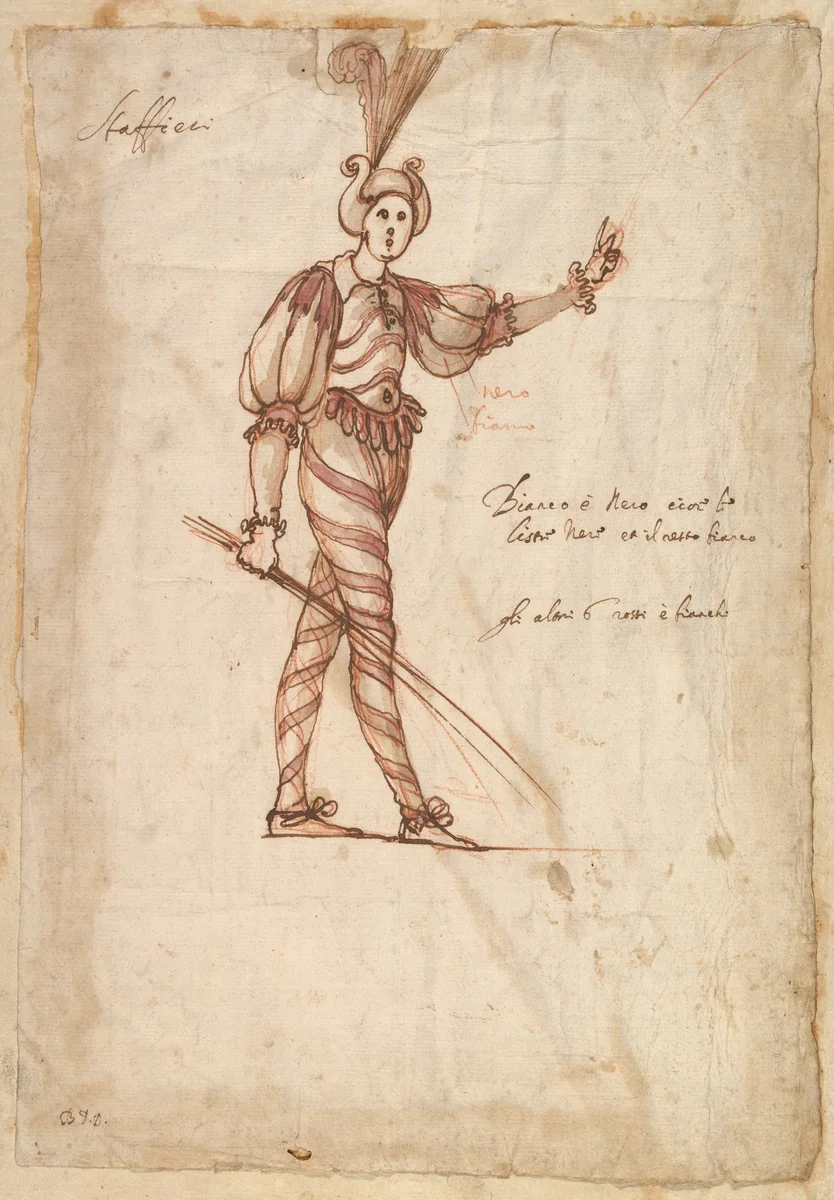 Staffieri
nero
bianco
Bianco è Nero cioè le
listre Nere et il resto bianco
gli altri 6 rossi è bianchi
B T.B.